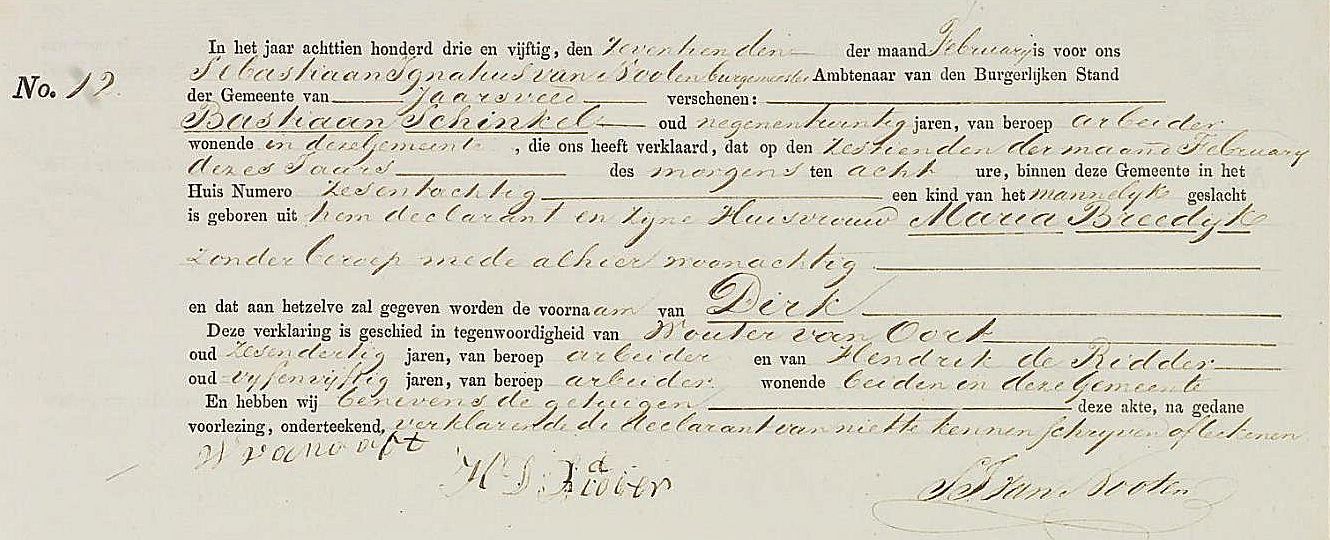 In het jaar achttien honderd drie en vijftig, den zeventienden der maand February is voor ons
No. 12. Sebastiaan Ignatius van Nooten burgemeester Ambtenaar van den Burgerlijken Stand
der Gemeente van Jaarsveld verschenen:
Bastiaan Schinkel oud negenentwintig jaren, van beroep arbeider
wonende in deze Gemeente, die ons heeft verklaard, dat op den zestienden der maand February
dezes Jaars des morgens ten acht ure, binnen deze Gemeente in het
Huis Numero zesentachtig een kind van het mannelyk geslacht
is geboren uit hem declarant en zyne Huisvrouw Maria Breedyk
zonder beroep mede alhier woonachtig
en dat aan hetzelve zal gegeven worden de voornaam van Dirk
Deze verklaring is geschied in tegenwoordigheid van Wouter van Oort
oud zesendertig jaren, van beroep arbeider en van Hendrik de Ridder
oud vyfenvyftig jaren, van beroep arbeider wonende beiden in deze Gemeente
En hebben wij benevens de getuigen deze akte, na gedane
voorlezing, onderteekend, verklarende de declarant van niet te kennen schryven of teekenen
W van oort
H D Ridder
S I van Nooten